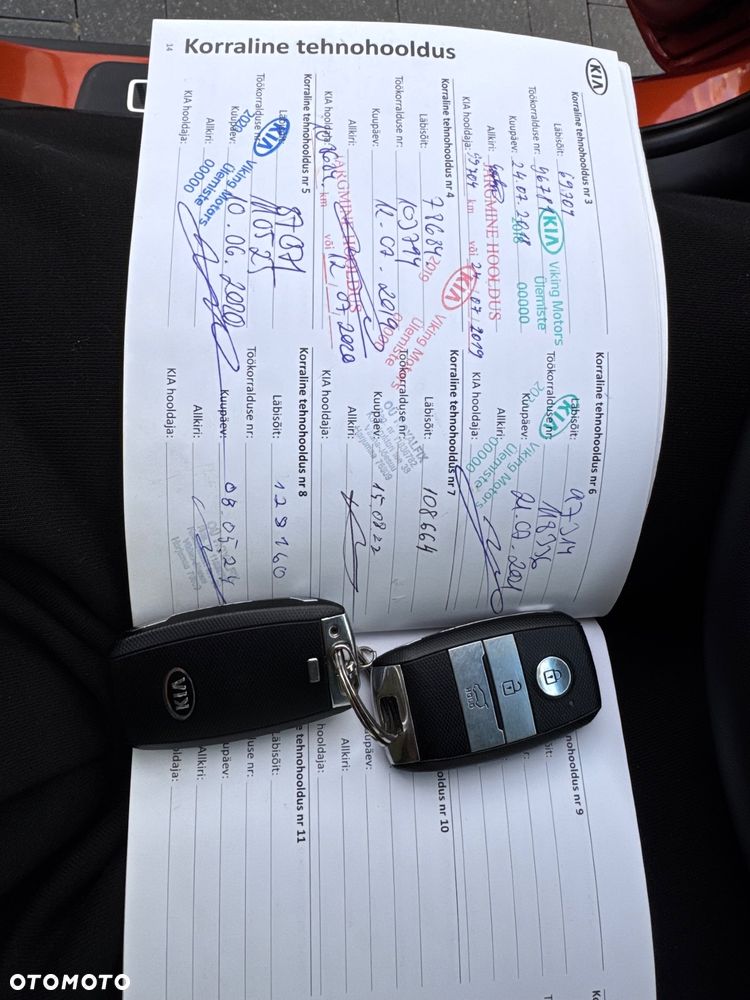 14 Korraline tehnohooldus
KIA
Korraline tehnohooldus nr 3
Läbisõit: 69704
Töökorralduse nr: 96781
Kuupäev: 24.07.2018
Allkiri:
KIA hooldaja:
KIA Viking Motors
Ülemiste
2018 00000
JÄRGMINE HOOLDUS
km või 24/07/2019
Korraline tehnohooldus nr 4
Läbisõit: 78684
Töökorralduse nr: 103794
Kuupäev: 12.07.2019
Allkiri:
KIA hooldaja:
KIA Viking Motors
Ülemiste
2019 00000
JÄRGMINE HOOLDUS
km või 12/07/2020
Korraline tehnohooldus nr 5
Läbisõit: 87871
Töökorralduse nr: 110525
Kuupäev: 10.06.2020
Allkiri:
KIA hooldaja:
KIA Viking Motors
Ülemiste
2020 00000
Korraline tehnohooldus nr 6
Läbisõit: 97314
Töökorralduse nr: 118336
Kuupäev: 21.07.2021
Allkiri:
KIA hooldaja:
KIA Viking Motors
Ülemiste
00000
Korraline tehnohooldus nr 7
Läbisõit: 108664
Töökorralduse nr:
Kuupäev: 15.08.22
Allkiri:
KIA hooldaja:
Korraline tehnohooldus nr 8
Läbisõit: 129160
Töökorralduse nr:
Kuupäev: 08.05.24
Allkiri:
KIA hooldaja:
nohooldus nr 9
oldus nr 10
Kuupäev:
Allkiri:
hooldaja:
e tehnohooldus nr 11
Läbisõit:
duse nr:
Kuupäev:
Allkiri:
oldaja:
KIA
HOLD
OTOMOTO